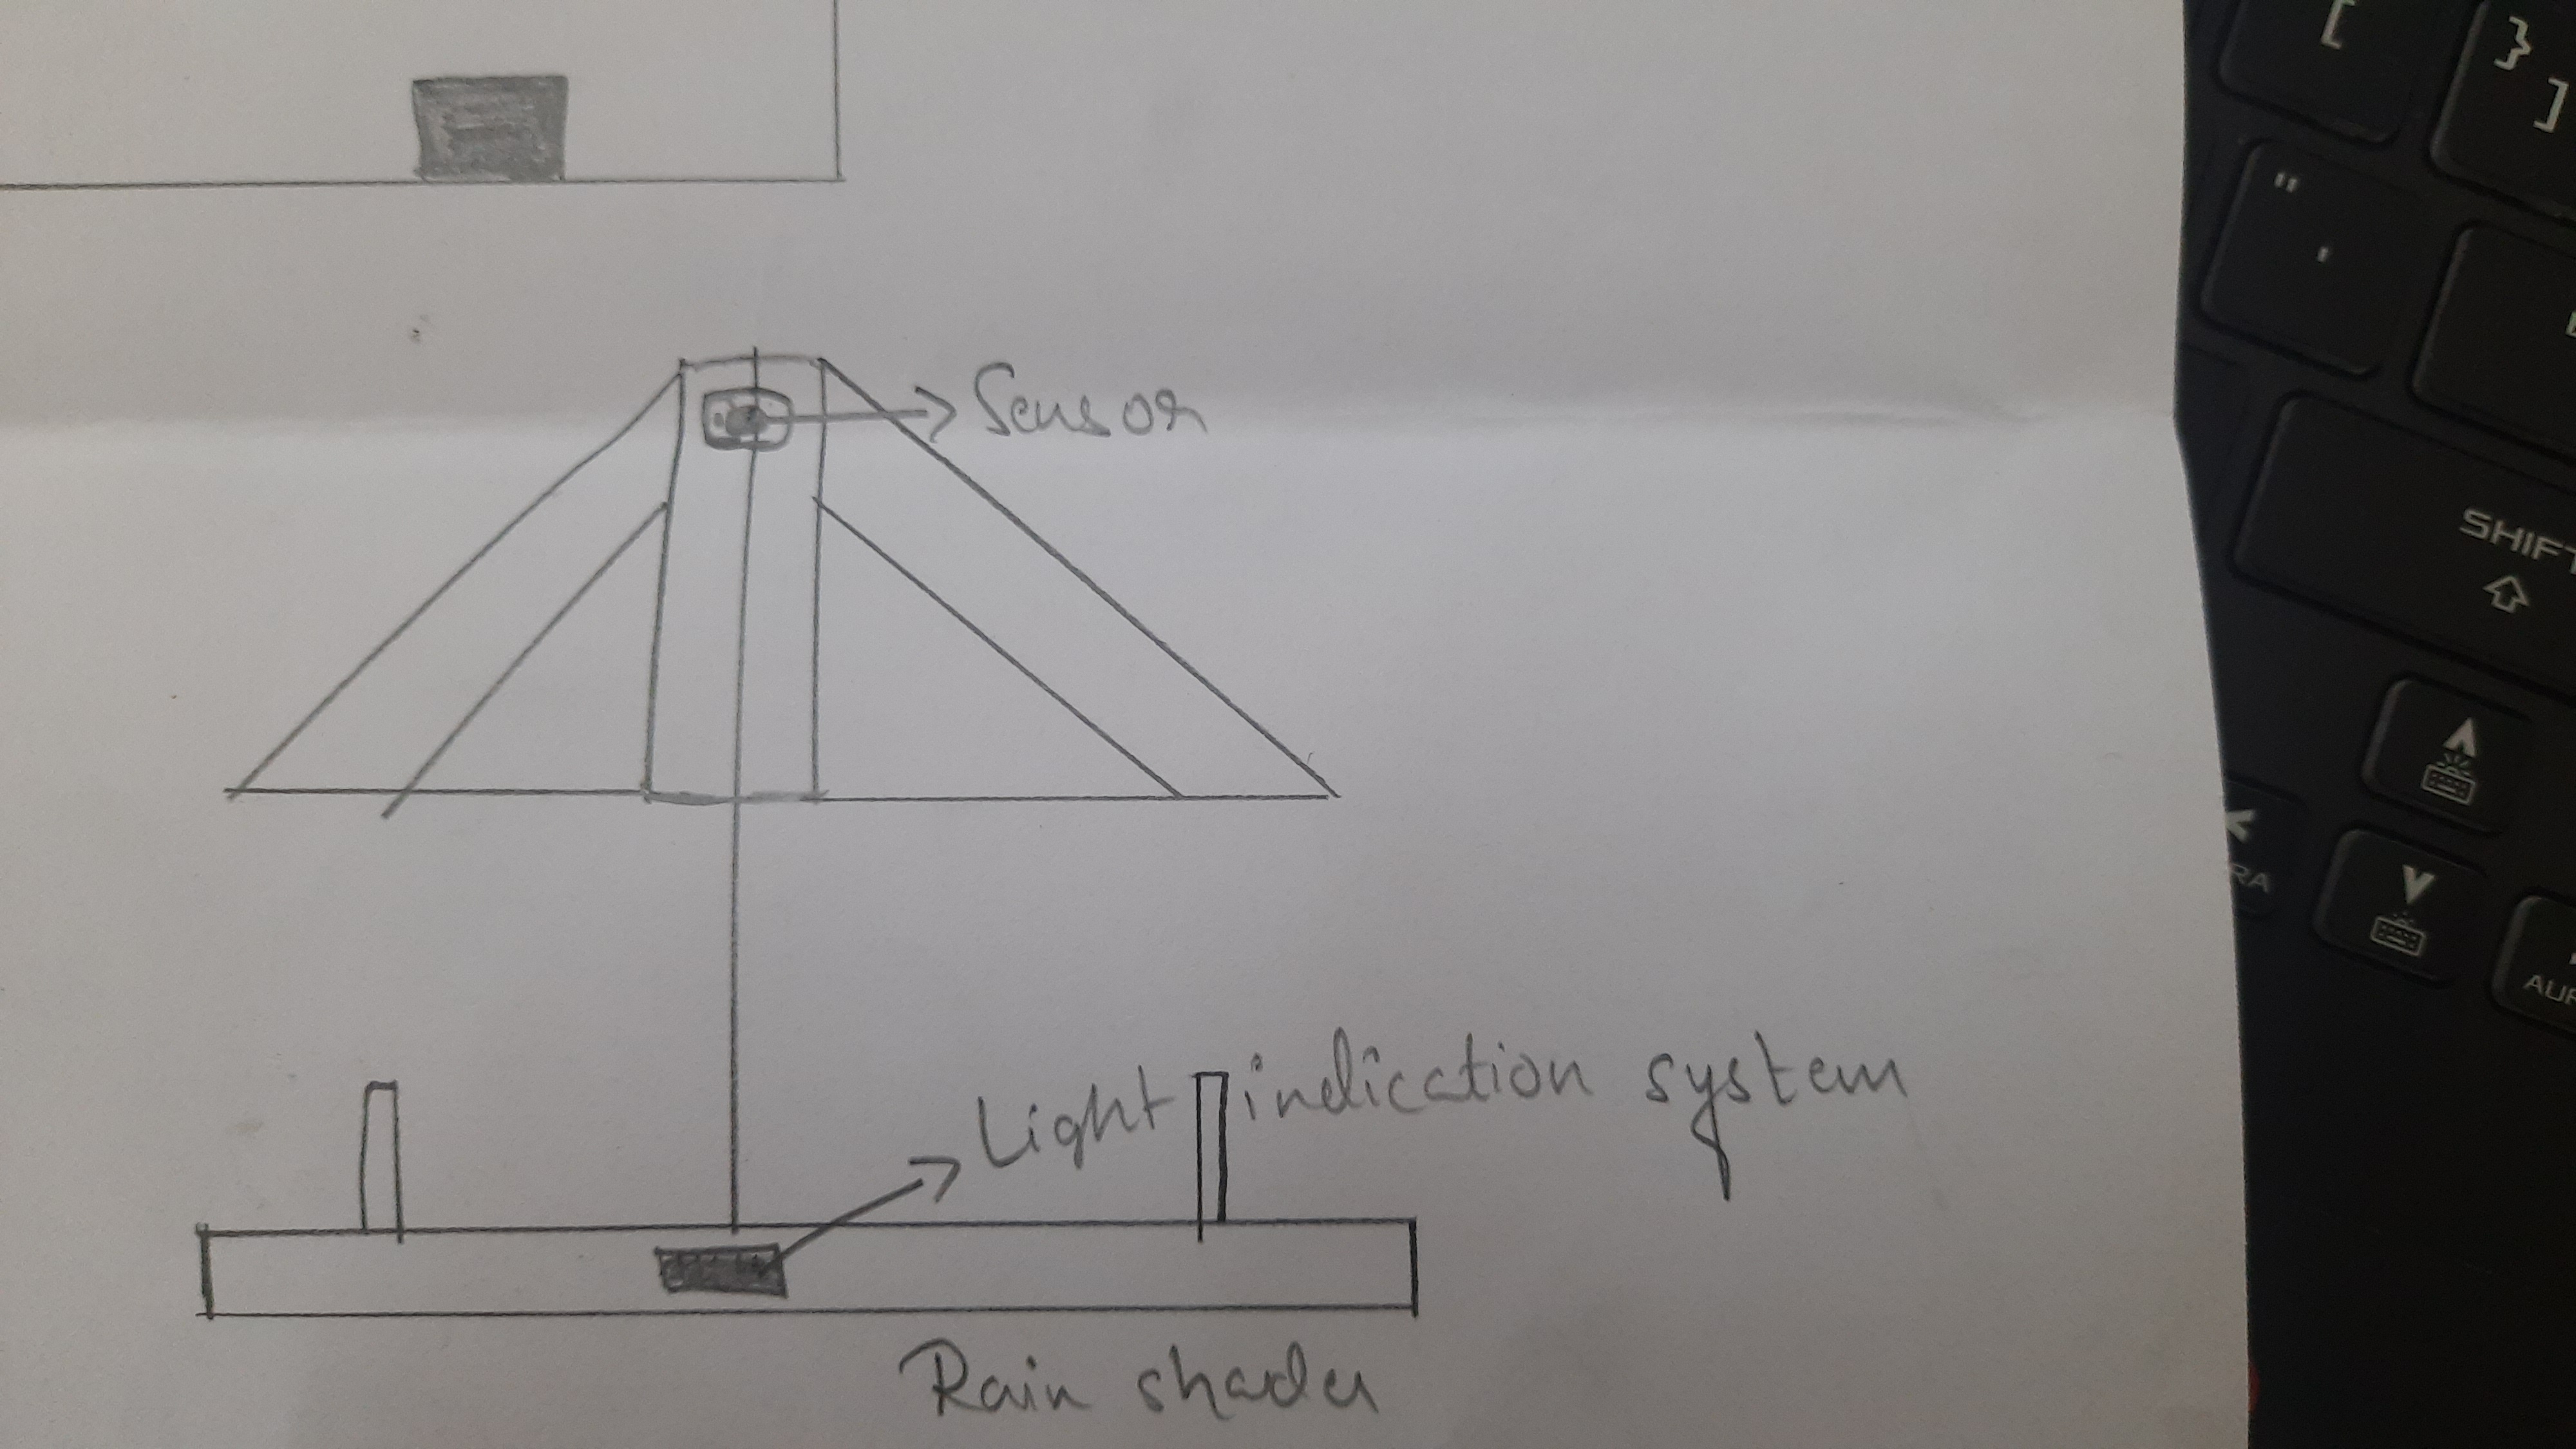 Sensor
Light indication system
Rain shader
[
}
]
"
'
SHIFT
RA
AUR